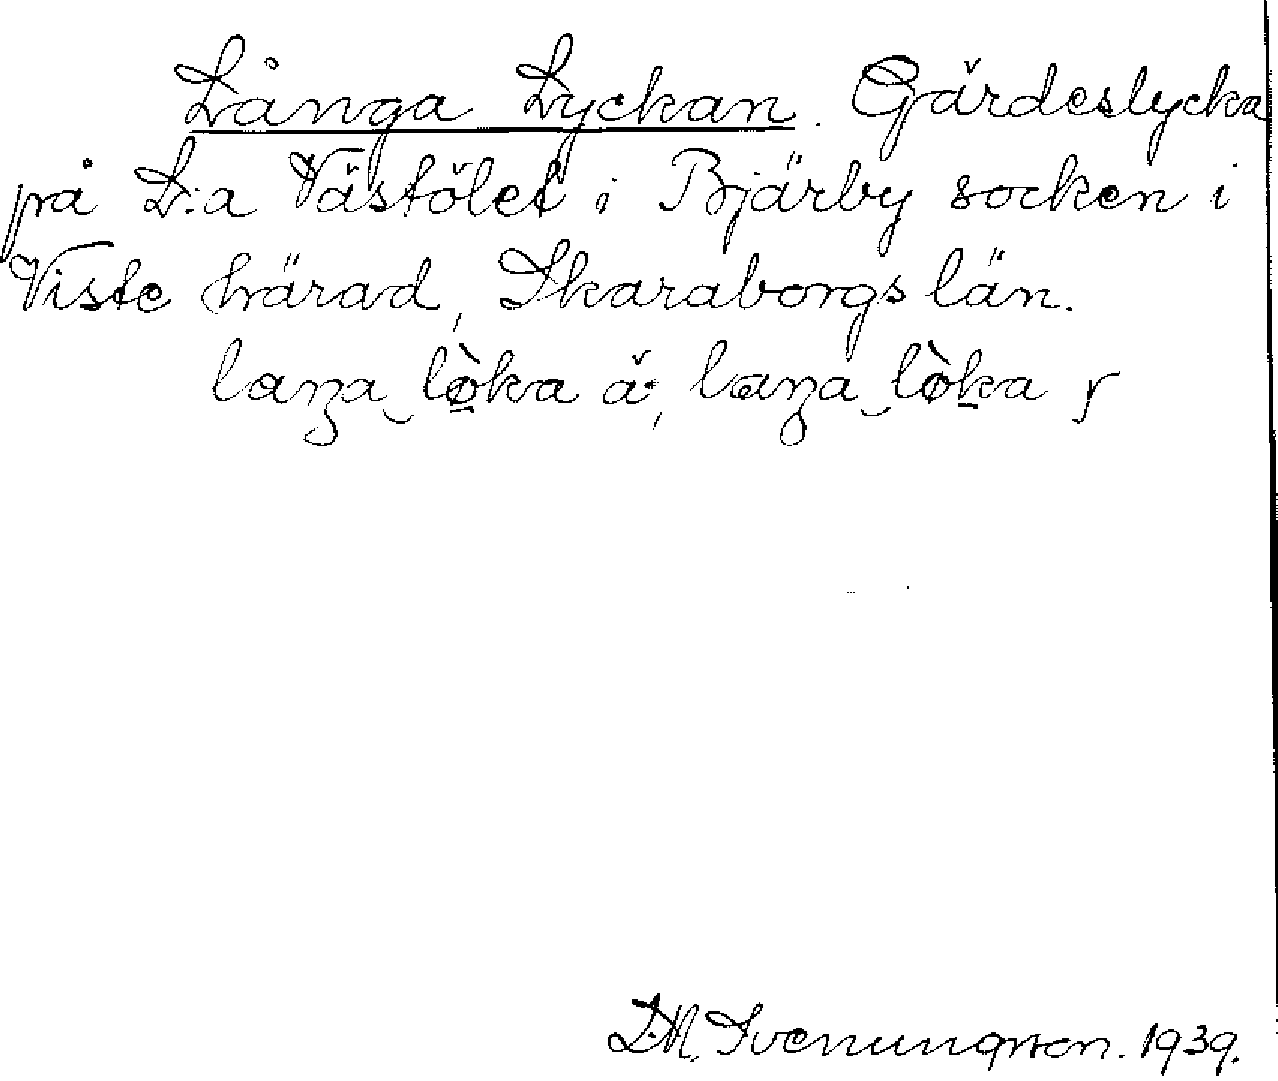 Långa Lyckan. Gärdeslycka
på L:a Västölet i Bjärby socken i
Viste härad, Skaraborgs län.
laŋa lø̀ka å:, laŋa lø̀ka
L.M. Svenungsson. 1939.